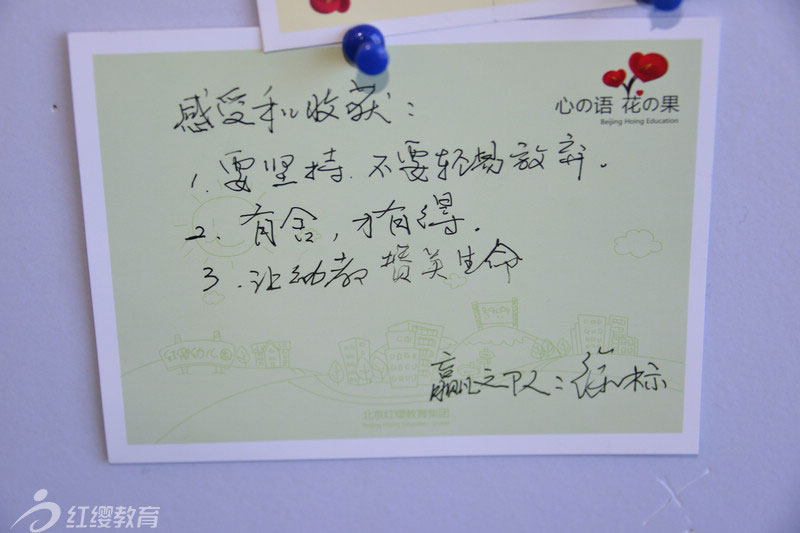 心の语 花の果
Beijing Hoing Education
感受和收获：
1. 要坚持.不要轻易放弃。
2. 有舍，才有得。
3. 让幼教 赞美生命
赢之队：徐标
北京红缨教育集团
Beijing Hoing Education Group
红缨教育